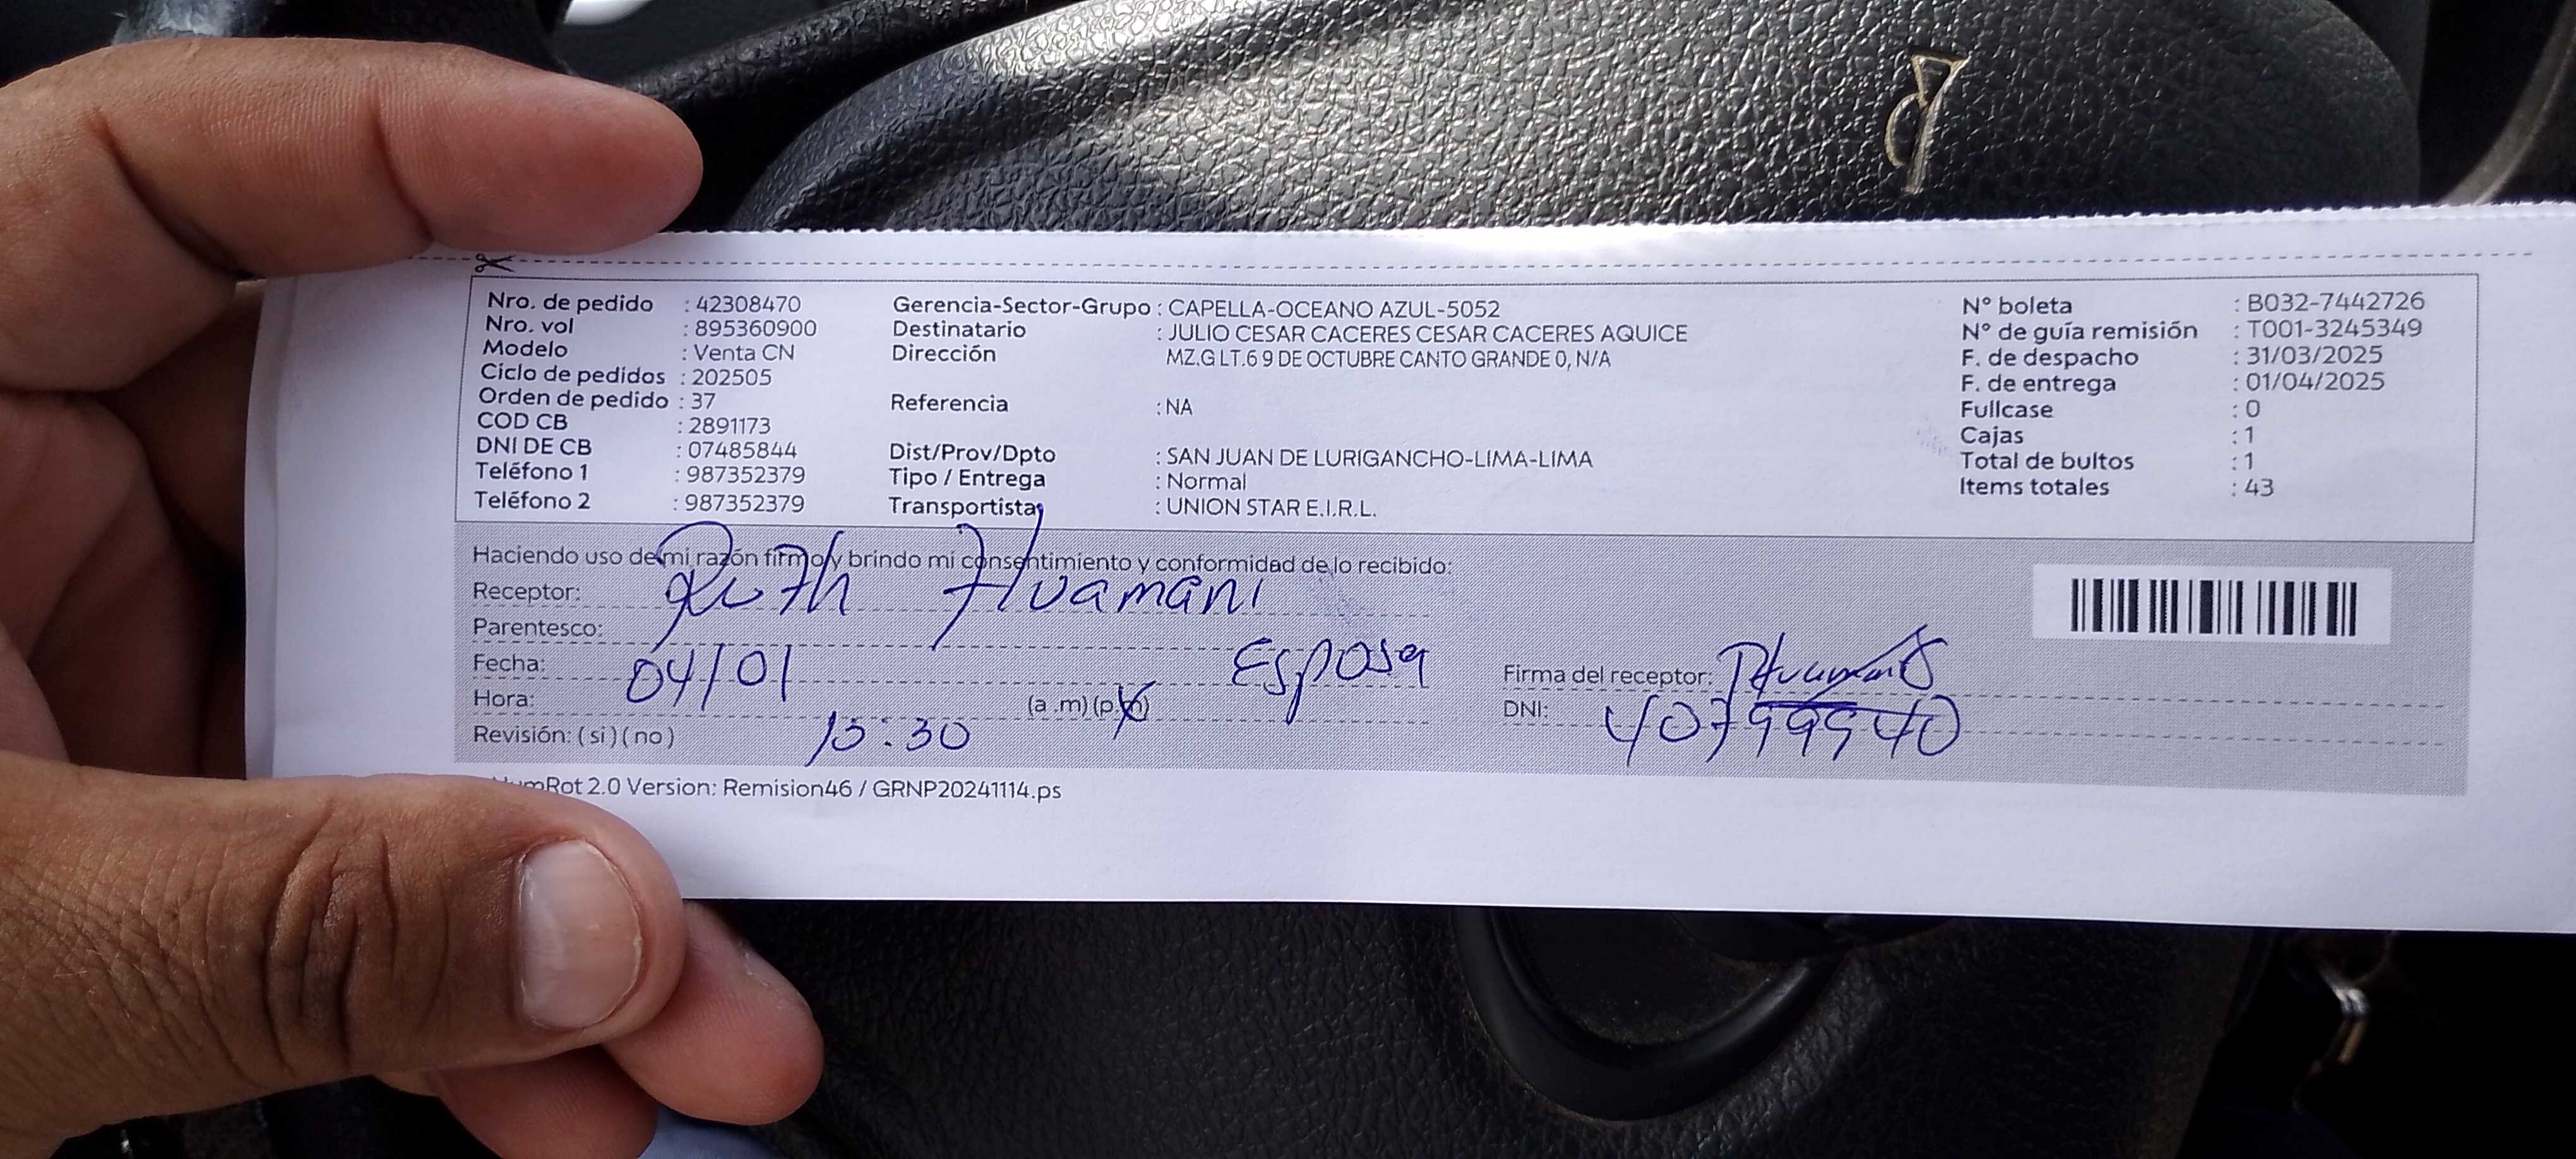 Nro. de pedido : 42308470
Nro. vol : 895360900
Modelo : Venta CN
Ciclo de pedidos : 202505
Orden de pedido : 37
COD CB : 2891173
DNI DE CB : 07485844
Teléfono 1 : 987352379
Teléfono 2 : 987352379
Gerencia-Sector-Grupo : CAPELLA-OCEANO AZUL-5052
Destinatario : JULIO CESAR CACERES CESAR CACERES AQUICE
Dirección MZ.G LT.6 9 DE OCTUBRE CANTO GRANDE 0, N/A
Referencia : NA
Dist/Prov/Dpto : SAN JUAN DE LURIGANCHO-LIMA-LIMA
Tipo / Entrega : Normal
Transportista : UNION STAR E.I.R.L.
N° boleta : B032-7442726
N° de guía remisión : T001-3245349
F. de despacho : 31/03/2025
F. de entrega : 01/04/2025
Fullcase : 0
Cajas : 1
Total de bultos : 1
Items totales : 43
Haciendo uso de mi razón firmo y brindo mi consentimiento y conformidad de lo recibido:
Receptor: Ruth Huamani
Parentesco: Esposa
Fecha: 04/01
Hora: 15:30 (a.m) (p.m)
Revisión: (si) (no)
Firma del receptor:
DNI: 40799940
Rot 2.0 Version: Remision46 / GRNP20241114.ps